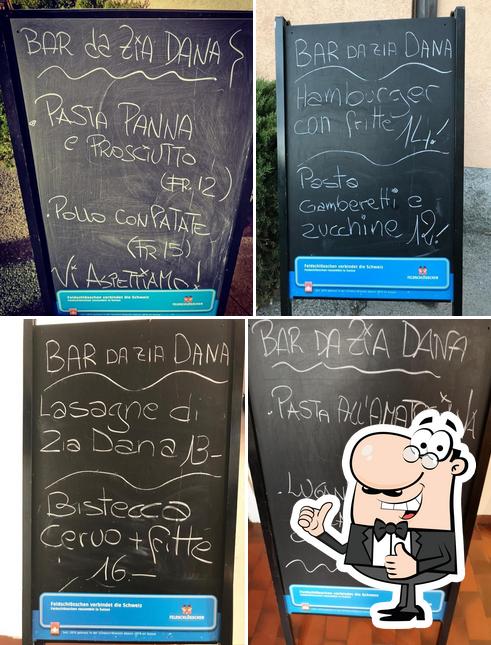 BAR da ZIA DANA
. PASTA PANNA
e PROSCIUTTO
(FR.12)
. POLLO CON PATATE
(FR.15)
Vi ASPETTIAMO!
Feldschlösschen verbindet die Schweiz
FELDSCHLÖSSCHEN
BAR DA ZIA DANA
Hamburger
con fritte 14.-
Pasta
Gamberetti e
zucchine 12.-
Feldschlösschen verbindet die Schweiz
FELDSCHLÖSSCHEN
BAR DA ZIA DANA
Lasagne di
Zia Dana 13-
Bistecca
Cervo + fritte
16.-
Feldschlösschen verbindet die Schweiz
FELDSCHLÖSSCHEN
BAR DA ZIA DANA
. PASTA ALL'AMAT